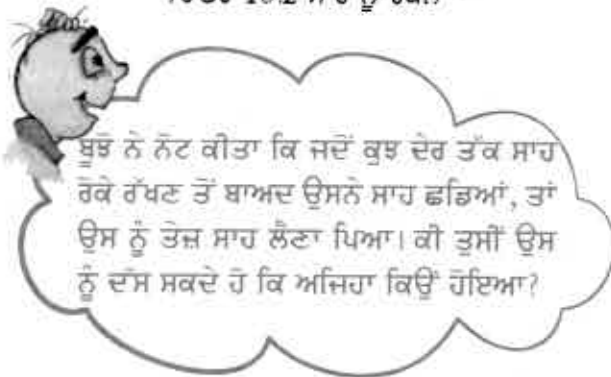 ਸਾਹ ਨੂੰ ਰੋਕਣਾ
ਬੂਝੋ ਨੇ ਨੋਟ ਕੀਤਾ ਕਿ ਜਦੋਂ ਕੁਝ ਦੇਰ ਤੱਕ ਸਾਹ
ਰੋਕੇ ਰੱਖਣ ਤੋਂ ਬਾਅਦ ਉਸਨੇ ਸਾਹ ਛਡਿਆਂ, ਤਾਂ
ਉਸ ਨੂੰ ਤੇਜ਼ ਸਾਹ ਲੈਣਾ ਪਿਆ। ਕੀ ਤੁਸੀਂ ਉਸ
ਨੂੰ ਦੱਸ ਸਕਦੇ ਹੋ ਕਿ ਅਜਿਹਾ ਕਿਉਂ ਹੋਇਆ?